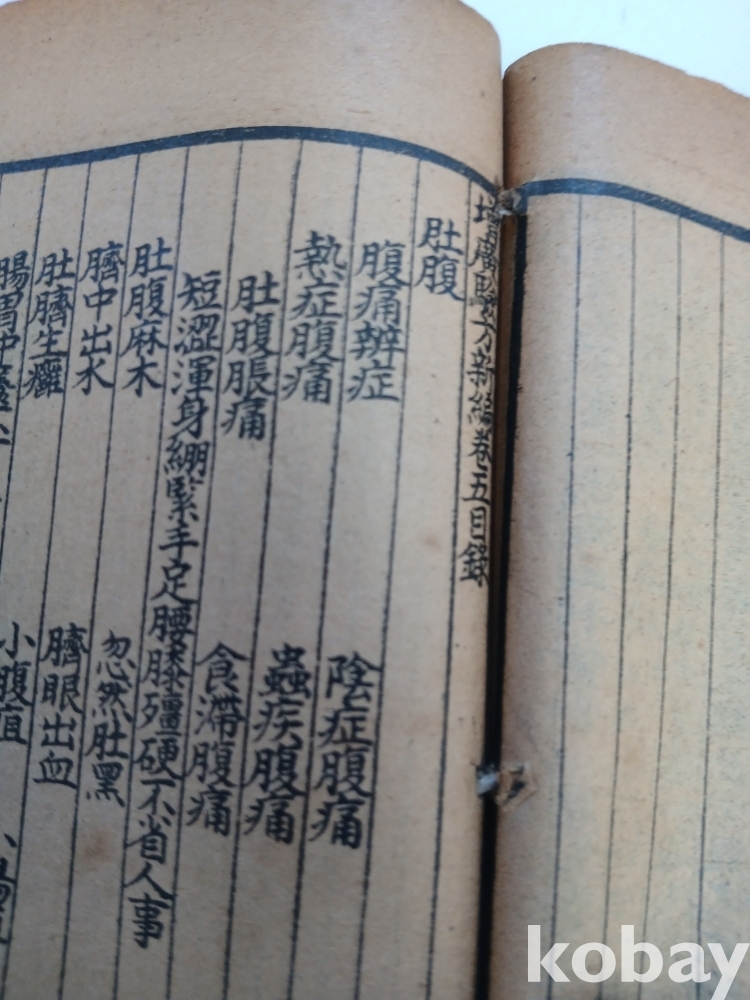 增廣驗方新編卷五目錄
肚腹
腹痛辨症 陰症腹痛
熱症腹痛 蟲疾腹痛
肚腹脹痛 食滯腹痛
短澀渾身綳緊手足腰膝殭硬不省人事
肚腹麻木 忽然肚黑
臍中出水 臍眼出血
肚臍生癰 小腹疽
腸胃中
kobay